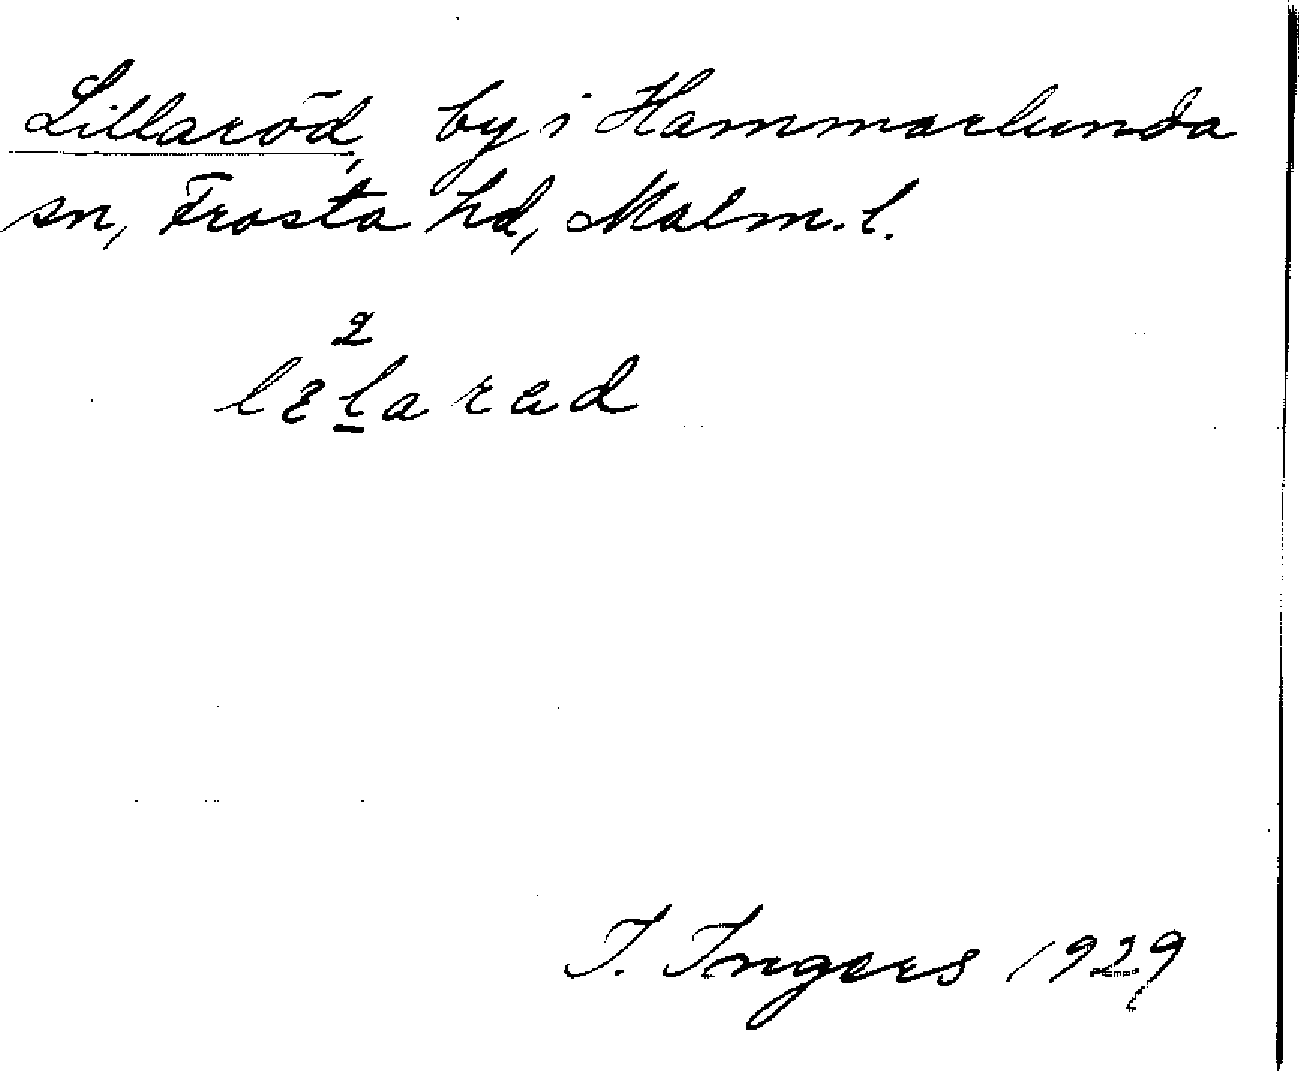 Lillaröd, by i Hammarlunda
sn, Frosta hd, Malm. l.
2
I. Ingers 1929